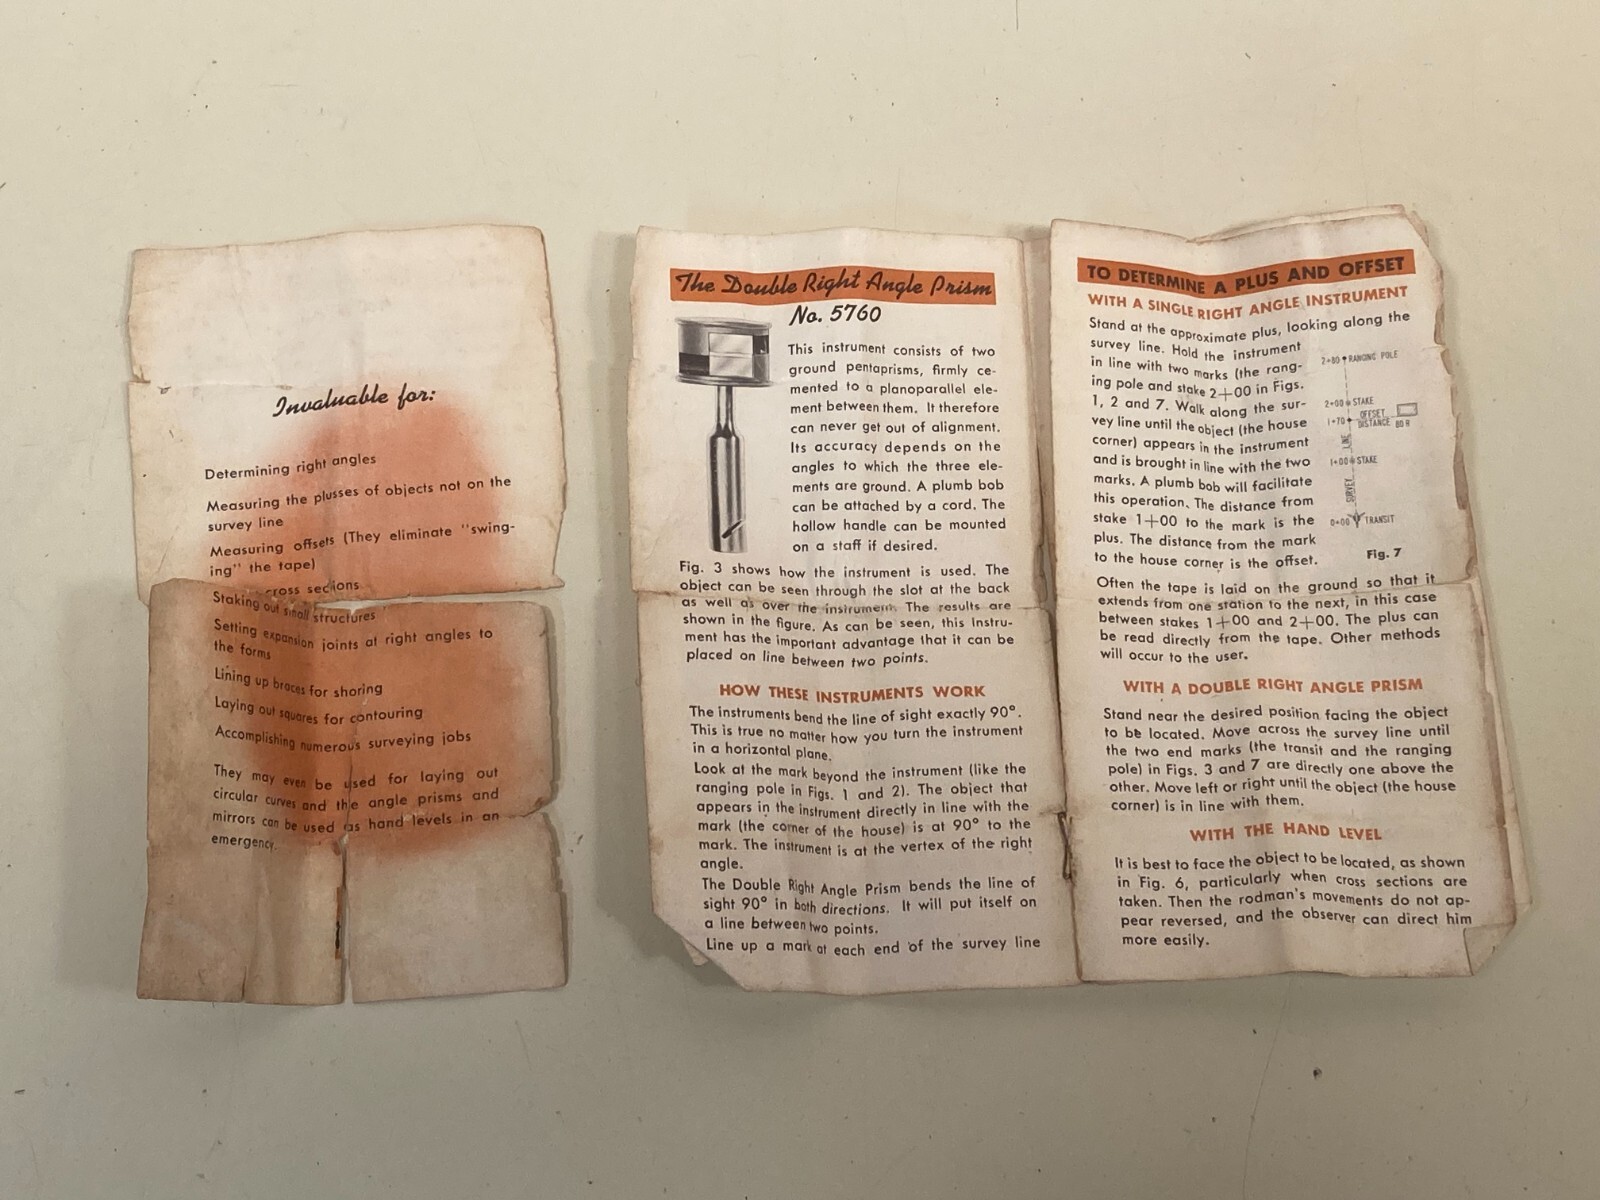 Invaluable for:
Determining right angles
Measuring the plusses of objects not on the
survey line
Measuring offsets (They eliminate "swing-
ing" the tape)
cross sections
Staking out small structures
Setting expansion joints at right angles to
the forms
Lining up braces for shoring
Laying out squares for contouring
Accomplishing numerous surveying jobs
They may even be used for laying out
circular curves and the angle prisms and
mirrors can be used as hand levels in an
emergency.
The Double Right Angle Prism
No. 5760
This instrument consists of two
ground pentaprisms, firmly ce-
mented to a planoparallel ele-
ment between them. It therefore
can never get out of alignment.
Its accuracy depends on the
angles to which the three ele-
ments are ground. A plumb bob
can be attached by a cord. The
hollow handle can be mounted
on a staff if desired.
Fig. 3 shows how the instrument is used. The
object can be seen through the slot at the back
as well as over the instrument. The results are
shown in the figure. As can be seen, this instru-
ment has the important advantage that it can be
placed on line between two points.
HOW THESE INSTRUMENTS WORK
The instruments bend the line of sight exactly 90°.
This is true no matter how you turn the instrument
in a horizontal plane.
Look at the mark beyond the instrument (like the
ranging pole in Figs. 1 and 2). The object that
appears in the instrument directly in line with the
mark (the corner of the house) is at 90° to the
mark. The instrument is at the vertex of the right
angle.
The Double Right Angle Prism bends the line of
sight 90° in both directions. It will put itself on
a line between two points.
Line up a mark at each end of the survey line
TO DETERMINE A PLUS AND OFFSET
WITH A SINGLE RIGHT ANGLE INSTRUMENT
Stand at the approximate plus, looking along the
survey line. Hold the instrument
in line with two marks (the rang-
ing pole and stake 2+00 in Figs.
1, 2 and 7. Walk along the sur-
vey line until the object (the house
corner) appears in the instrument
and is brought in line with the two
marks. A plumb bob will facilitate
this operation. The distance from
stake 1+00 to the mark is the
plus. The distance from the mark
to the house corner is the offset.
2+80 RANGING POLE
2+00 STAKE
OFFSET
1+70 DISTANCE 80 ft
LINE
1+00 STAKE
SURVEY
0+00 TRANSIT
Fig. 7
Often the tape is laid on the ground so that it
extends from one station to the next, in this case
between stakes 1+00 and 2+00. The plus can
be read directly from the tape. Other methods
will occur to the user.
WITH A DOUBLE RIGHT ANGLE PRISM
Stand near the desired position facing the object
to be located. Move across the survey line until
the two end marks (the transit and the ranging
pole) in Figs. 3 and 7 are directly one above the
other. Move left or right until the object (the house
corner) is in line with them.
WITH THE HAND LEVEL
It is best to face the object to be located, as shown
in Fig. 6, particularly when cross sections are
taken. Then the rodman's movements do not ap-
pear reversed, and the observer can direct him
more easily.